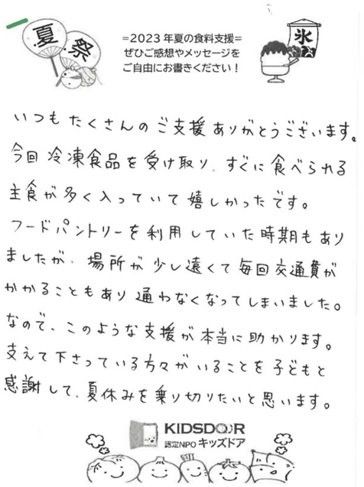 夏祭
=2023年夏の食料支援=
ぜひご感想やメッセージを
ご自由にお書きください!
氷
いつもたくさんのご支援ありがとうございます。
今回冷凍食品を受け取り、すぐに食べられる
主食が多く入っていて嬉しかったです。
フードパントリーを利用していた時期もあり
ましたが、場所が少し遠くて毎回交通費が
かかることもあり通わなくなってしまいました。
なので、このような支援が本当に助かります。
支えて下さっている方々がいることを子どもと
感謝して、夏休みを乗り切りたいと思います。
KIDSDOOR
認定NPO キッズドア